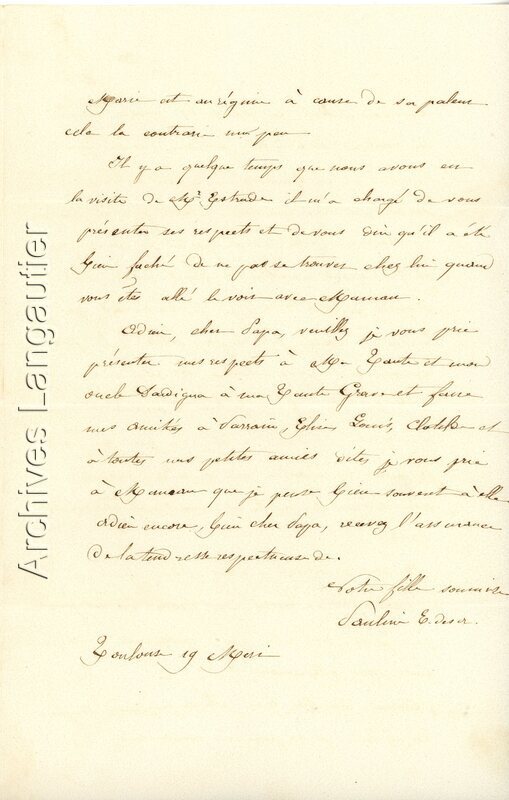 Marie est au régime à cause de sa paleur
cela la contrarie un peu
Il y a quelque temps que nous avons eu
la visite de Mr Estrade il m'a chargé de vous
présenter ses respects et de vous dire qu'il a été
bien faché de ne pas se trouver chez lui quand
vous êtes allé le voir avec Maman.
Adieu, cher Papa, veuillez je vous prie
présenter mes respects à Ma Tante et mon
oncle Dardigna à ma Tante Grave et faire
mes amitiés à Parrain, Elisa Louis, Clotilde et
à toutes mes petites amies dites je vous prie
à Maman que je pense bien souvent à elle
adieu encore, bien cher Papa, recevez l'assurance
de la tendresse respectueuse de.
Votre fille soumise
Pauline E. de
Toulouse 19 Mai
Archives Langautier